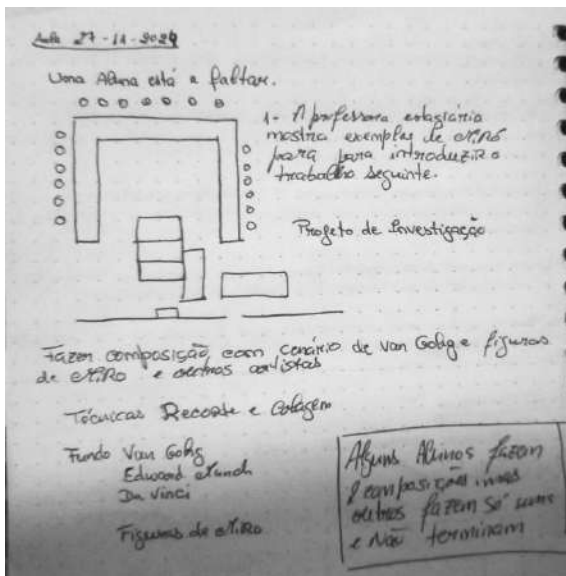 Aula 27-11-2024
Uma Aluna está a faltar.
1- A professora estagiária
mostra exemplos de MiRó
para para introduziR o
trabalho seguinte.
Projeto de Investigação
Fazer composição, com cenário de Van Gohg e figuras
de MiRO e outros artistas
Técnicas Recorte e Colagem
Fundo Van Gohg
Edward Munch
Da Vinci
Figuras de MiRO
Alguns Alunos fazem
2 composições, mas
outros fazem só uma
e Não terminam